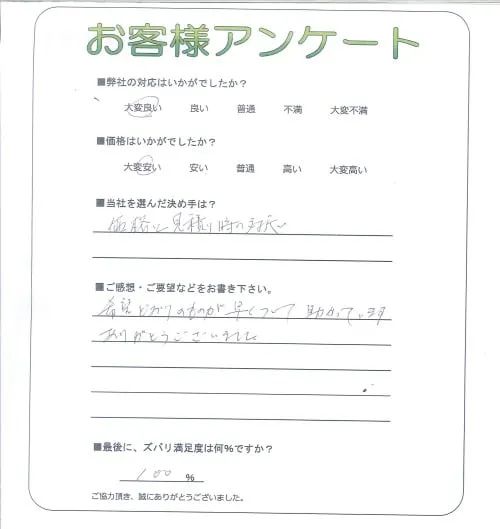 お客様アンケート
■弊社の対応はいかがでしたか？
大変良い 良い 普通 不満 大変不満
■価格はいかがでしたか？
大変安い 安い 普通 高い 大変高い
■当社を選んだ決め手は？
価格と見積り時の対応
■ご感想・ご要望などをお書き下さい。
希望どおりのものが早くついて助かっています
ありがとうございました。
■最後に、ズバリ満足度は何%ですか？
100 %
ご協力頂き、誠にありがとうございました。